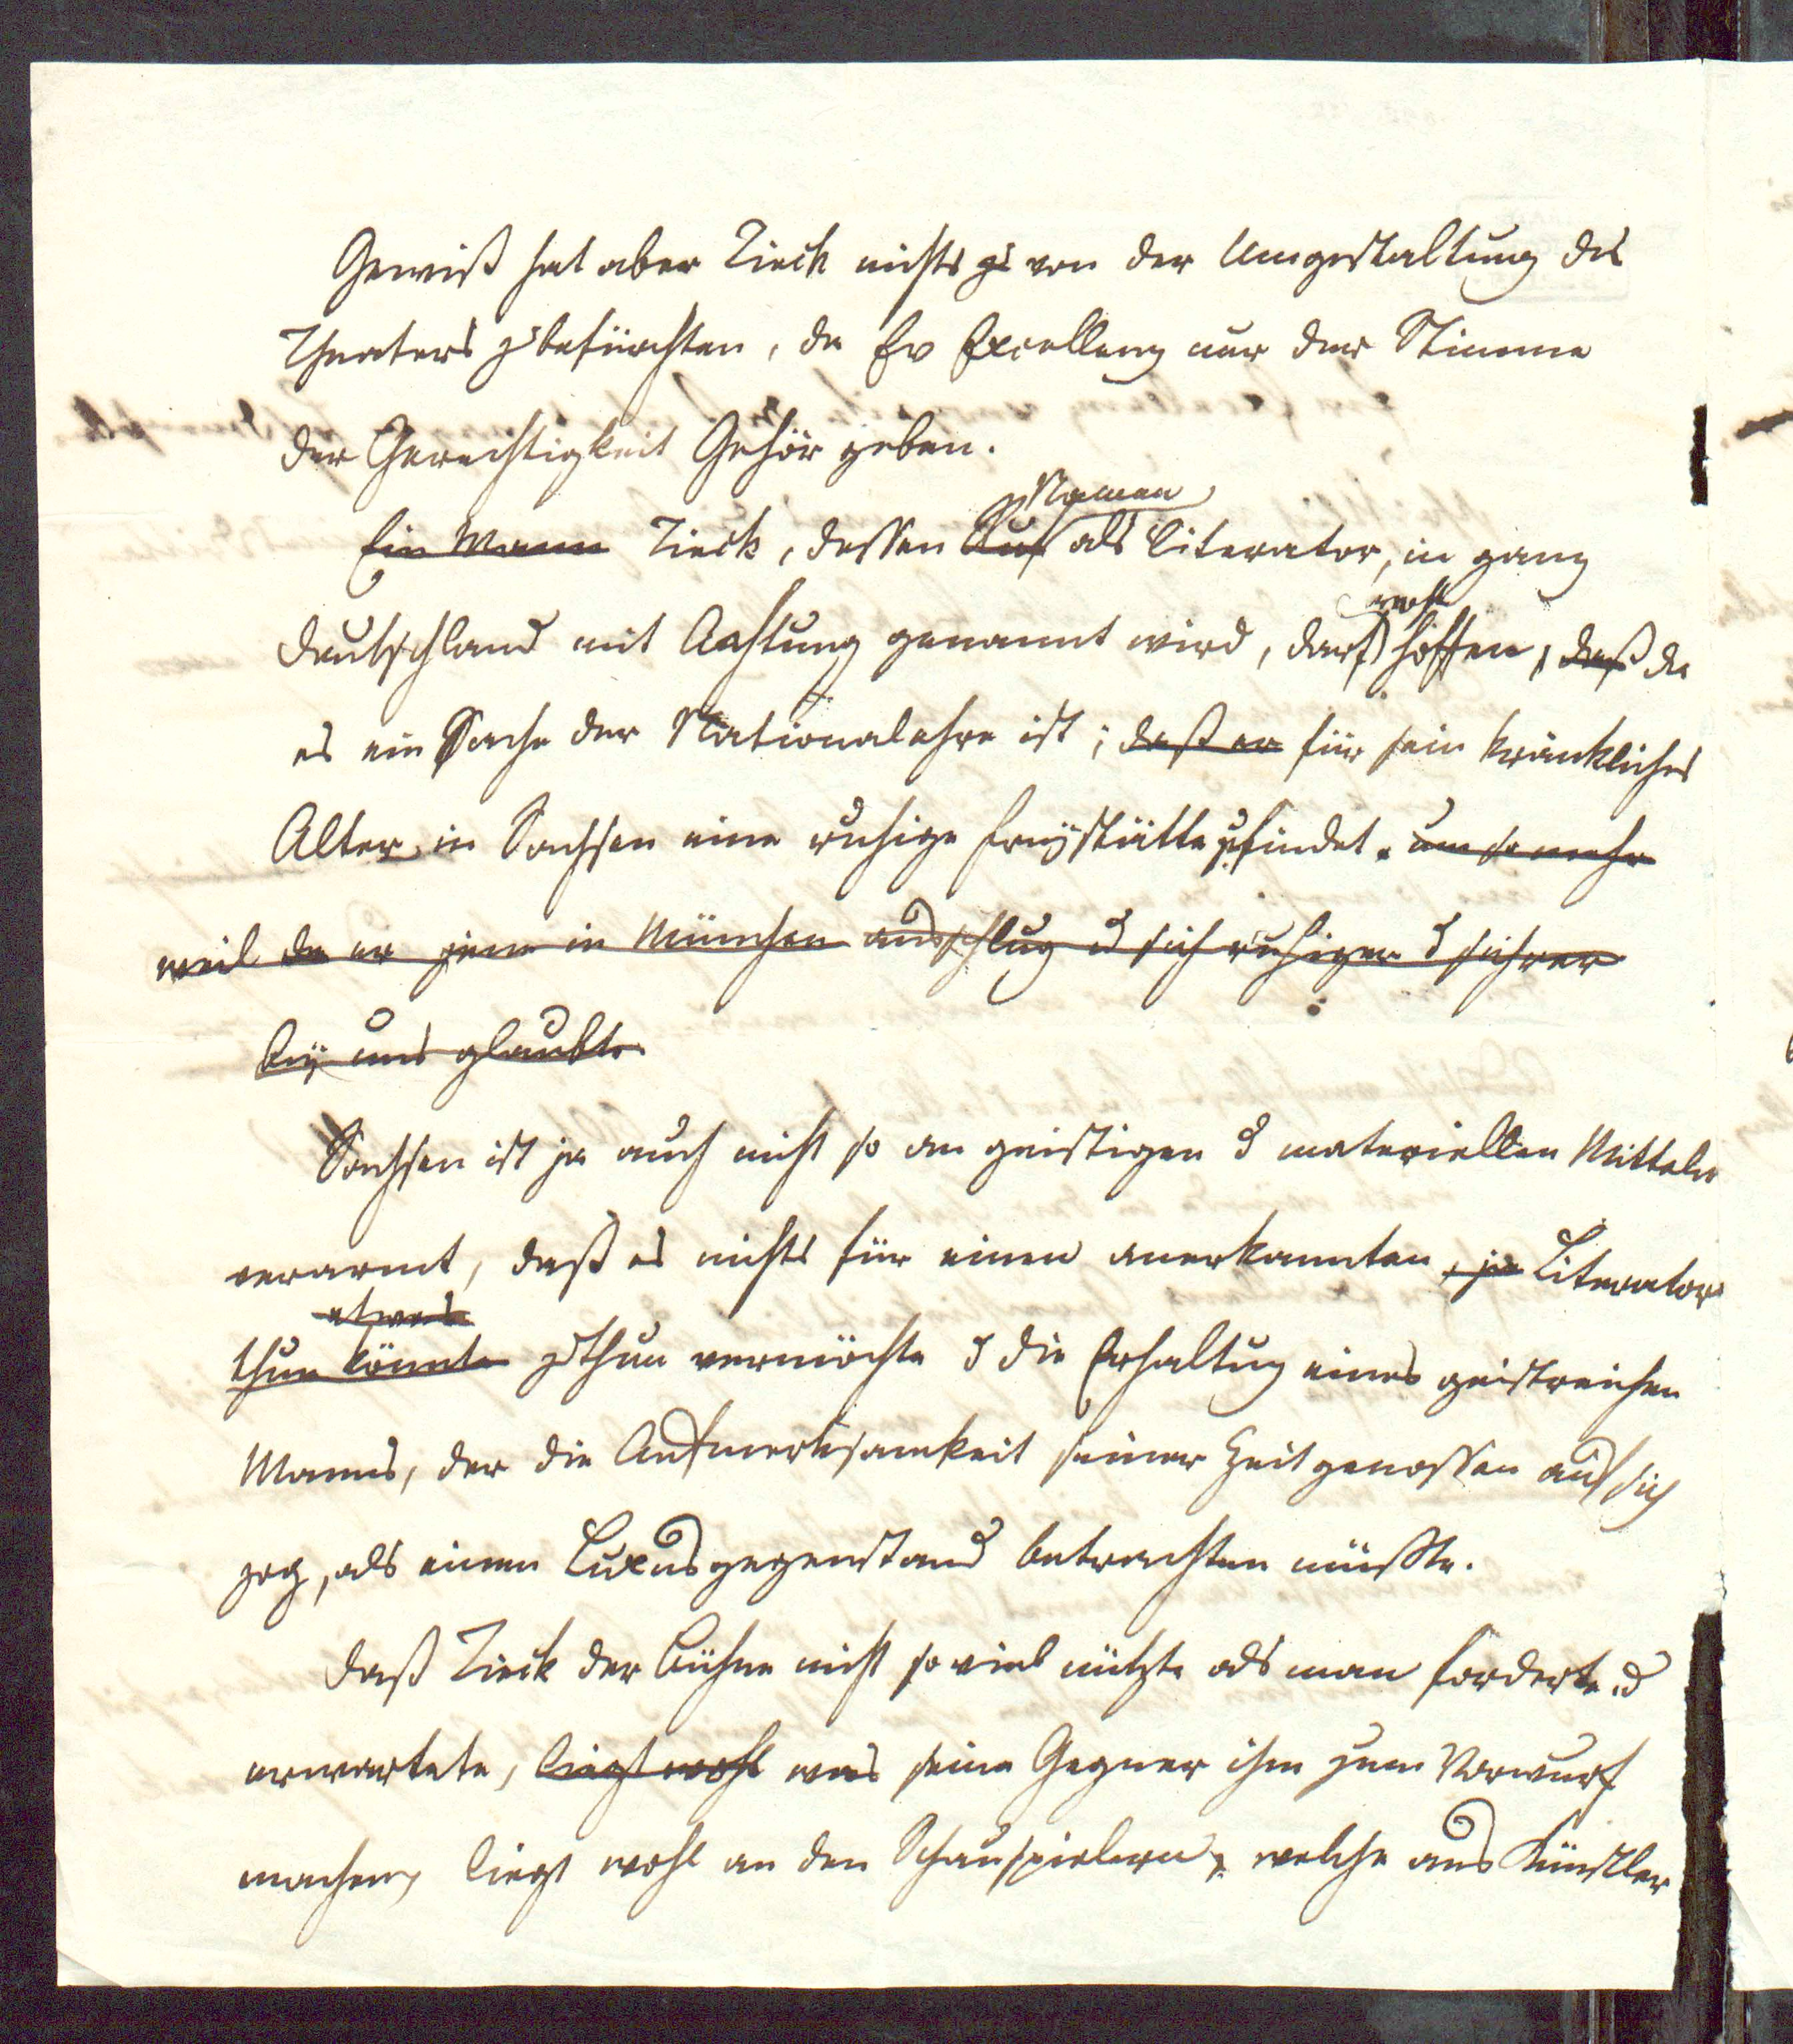 Gewiß hat aber Tieck nichts zu von der Umgestaltung des
Theaters zu befürchten, da Ew Excellenz nur der Stimme
der Gerechtigkeit Gehör geben.
Namen
Ein Mann Tieck, dessen Ruf als Literator, in ganz
wohl
Deutschland mit Achtung genannt wird, darf hoffen, daß da
es ein Sache der Nationalehre ist; daß er für sein kränkliches
Alter in Sachsen eine ruhige Freystätte findet. um so mehr
weil da er jene in München ausschlug u sich ruhiger u sichrer
bey uns glaubte
Sachsen ist ja auch nicht so an geistigen u materiellen Mitteln
verarmt, daß es nichts für einen anerkannten, ja Literator
etwas
thun könnte zu thun vermöchte u die Erhaltug eines geistreichen
Manns, der die Aufmerksamkeit seiner Zeitgenossen auf sich
zog, als einen Luxusgegenstand betrachten müßte.
Daß Tieck der Bühne nicht so viel nützte als man forderte u
erwartete, liegt wohl was seine Gegner ihm zum Vorwurf
machen, liegt wohl an den Schauspielern, welche aus Künstler